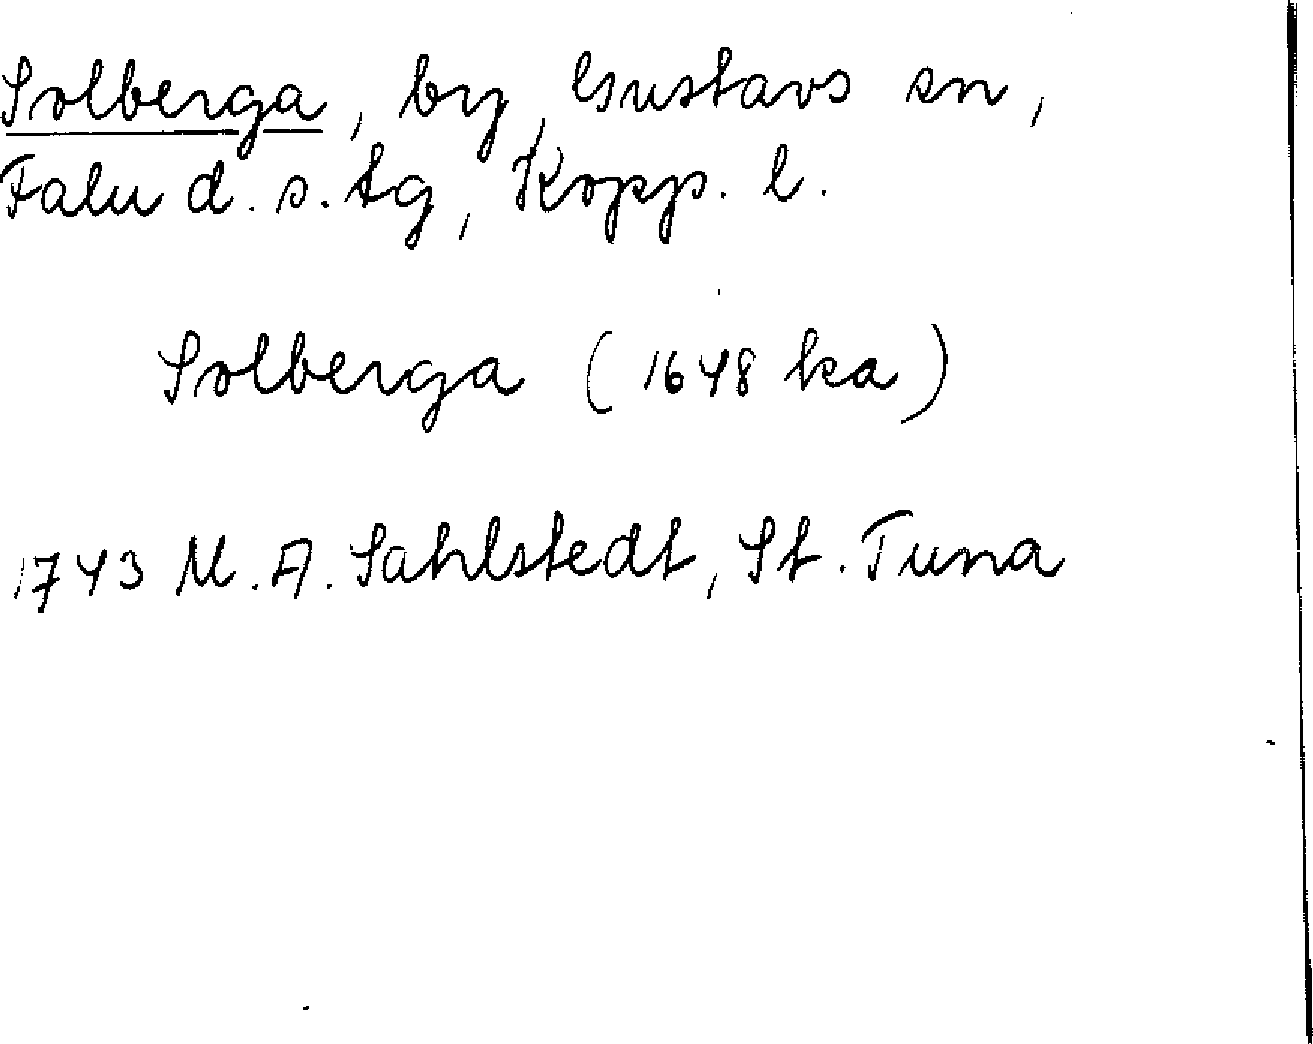 Solberga, by, Gustavs sn,
Falu d. s. tg, Kopp. l.
Solberga (1648 ka)
1743 M. A. Sahlstedt, St. Tuna